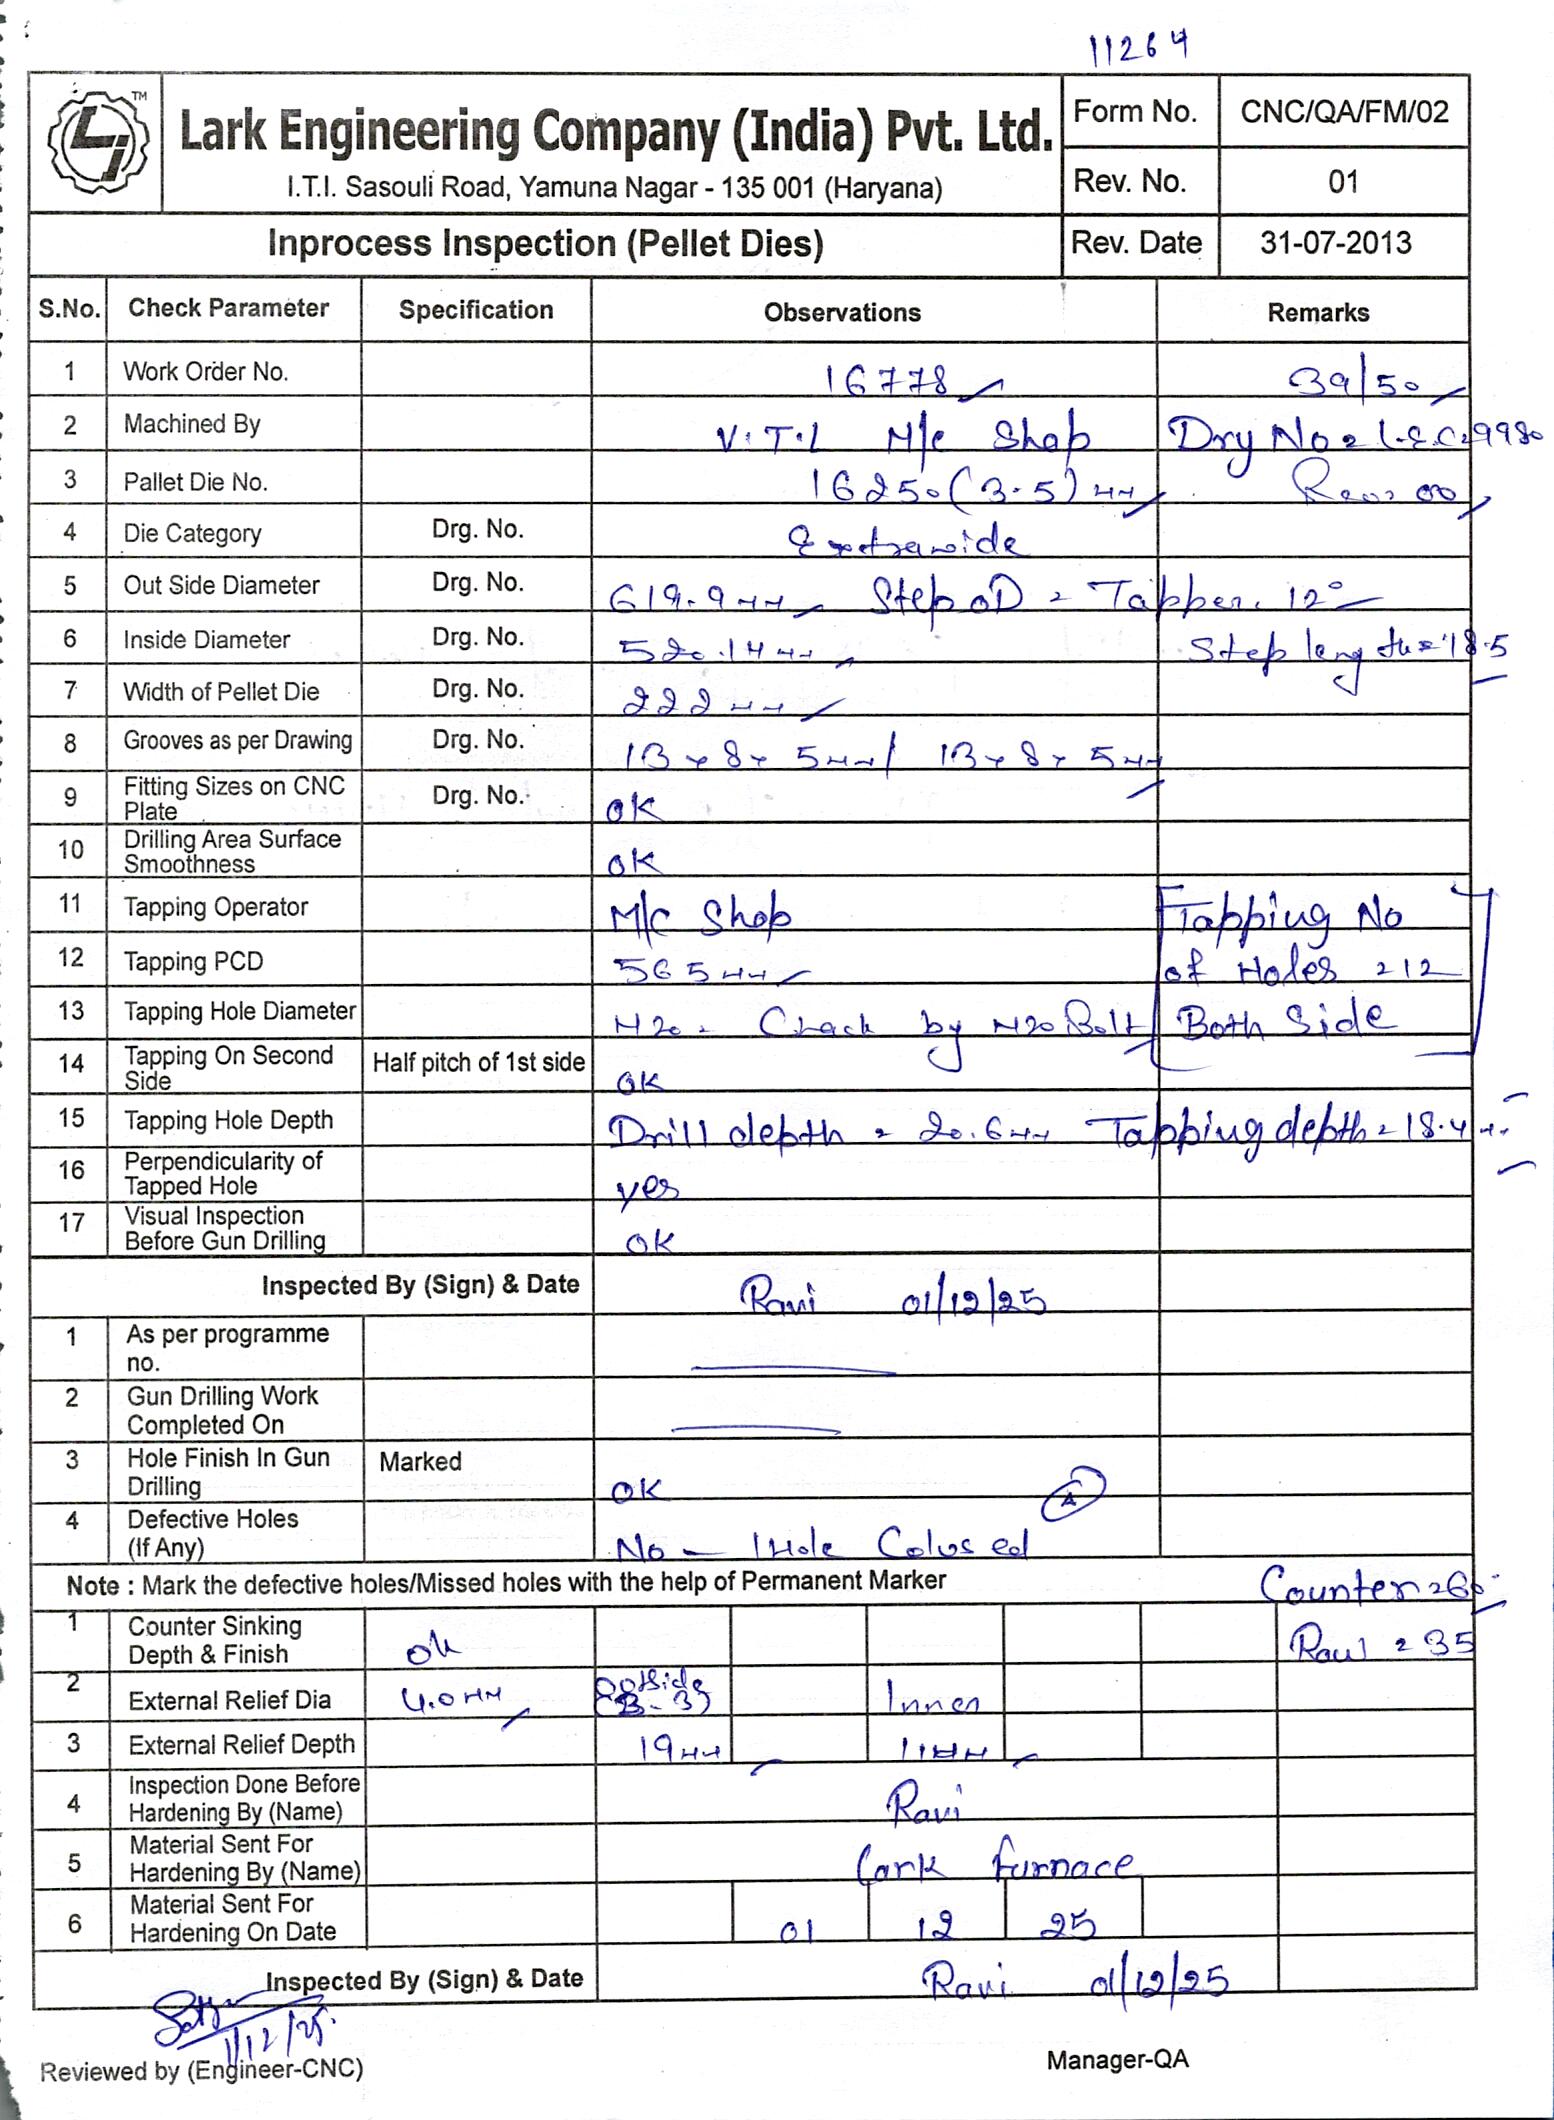 11264
TM
Lark Engineering Company (India) Pvt. Ltd.
I.T.I. Sasouli Road, Yamuna Nagar - 135 001 (Haryana)
Form No. CNC/QA/FM/02
Rev. No. 01
Inprocess Inspection (Pellet Dies) Rev. Date 31-07-2013
S.No. Check Parameter Specification Observations Remarks
1 Work Order No. 16778 39/50
2 Machined By V.T.L M/c Shop Drg No = L.E.C. 9980
3 Pallet Die No. 16250 (3.5) mm Rev = 00
4 Die Category Drg. No. Extrawide
5 Out Side Diameter Drg. No. 619.9 mm Step OD = Tapper. 12°
6 Inside Diameter Drg. No. 520.14 mm Step length = 18.5
7 Width of Pellet Die Drg. No. 222 mm
8 Grooves as per Drawing Drg. No. 13 x 8 x 5 mm / 13 x 8 x 5 mm
9 Fitting Sizes on CNC Plate Drg. No. OK
10 Drilling Area Surface Smoothness OK
11 Tapping Operator M/C Shop Tapping No
12 Tapping PCD 565 mm of Holes = 12
13 Tapping Hole Diameter M20 = Chack by M20 Bolt Both Side
14 Tapping On Second Side Half pitch of 1st side OK
15 Tapping Hole Depth Drill depth = 20.6 mm Tapping depth = 18.4 mm
16 Perpendicularity of Tapped Hole yes
17 Visual Inspection Before Gun Drilling OK
Inspected By (Sign) & Date Ravi 01/12/25
1 As per programme no.
2 Gun Drilling Work Completed On
3 Hole Finish In Gun Drilling Marked OK A
4 Defective Holes (If Any) No - 1 Hole Colused
Note : Mark the defective holes/Missed holes with the help of Permanent Marker Counter = 60°
1 Counter Sinking Depth & Finish ok Raw = 35
2 External Relief Dia 4.0 mm Outside (3-3) Inner
3 External Relief Depth 19 mm 11 mm
4 Inspection Done Before Hardening By (Name) Ravi
5 Material Sent For Hardening By (Name) Lark furnace
6 Material Sent For Hardening On Date 01 12 25
Inspected By (Sign) & Date Ravi 01/12/25
1/12/25.
Reviewed by (Engineer-CNC) Manager-QA